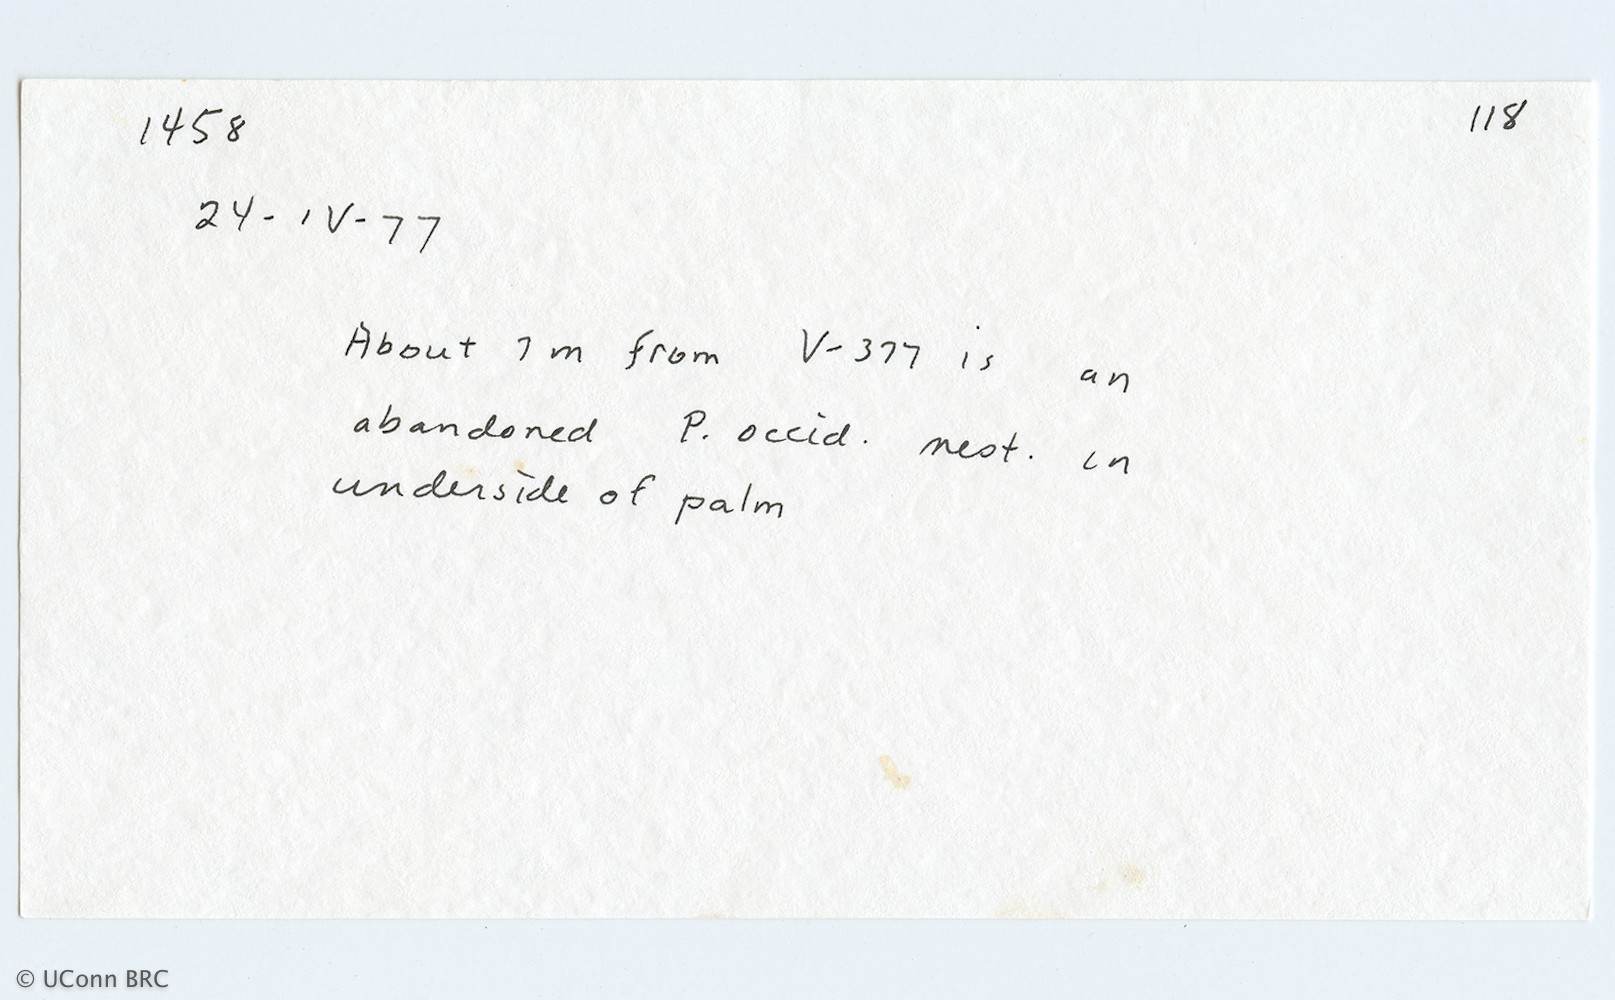 1458 118
24-IV-77
About 7m from V-377 is an
abandoned P. occid. nest. in
underside of palm
© UConn BRC